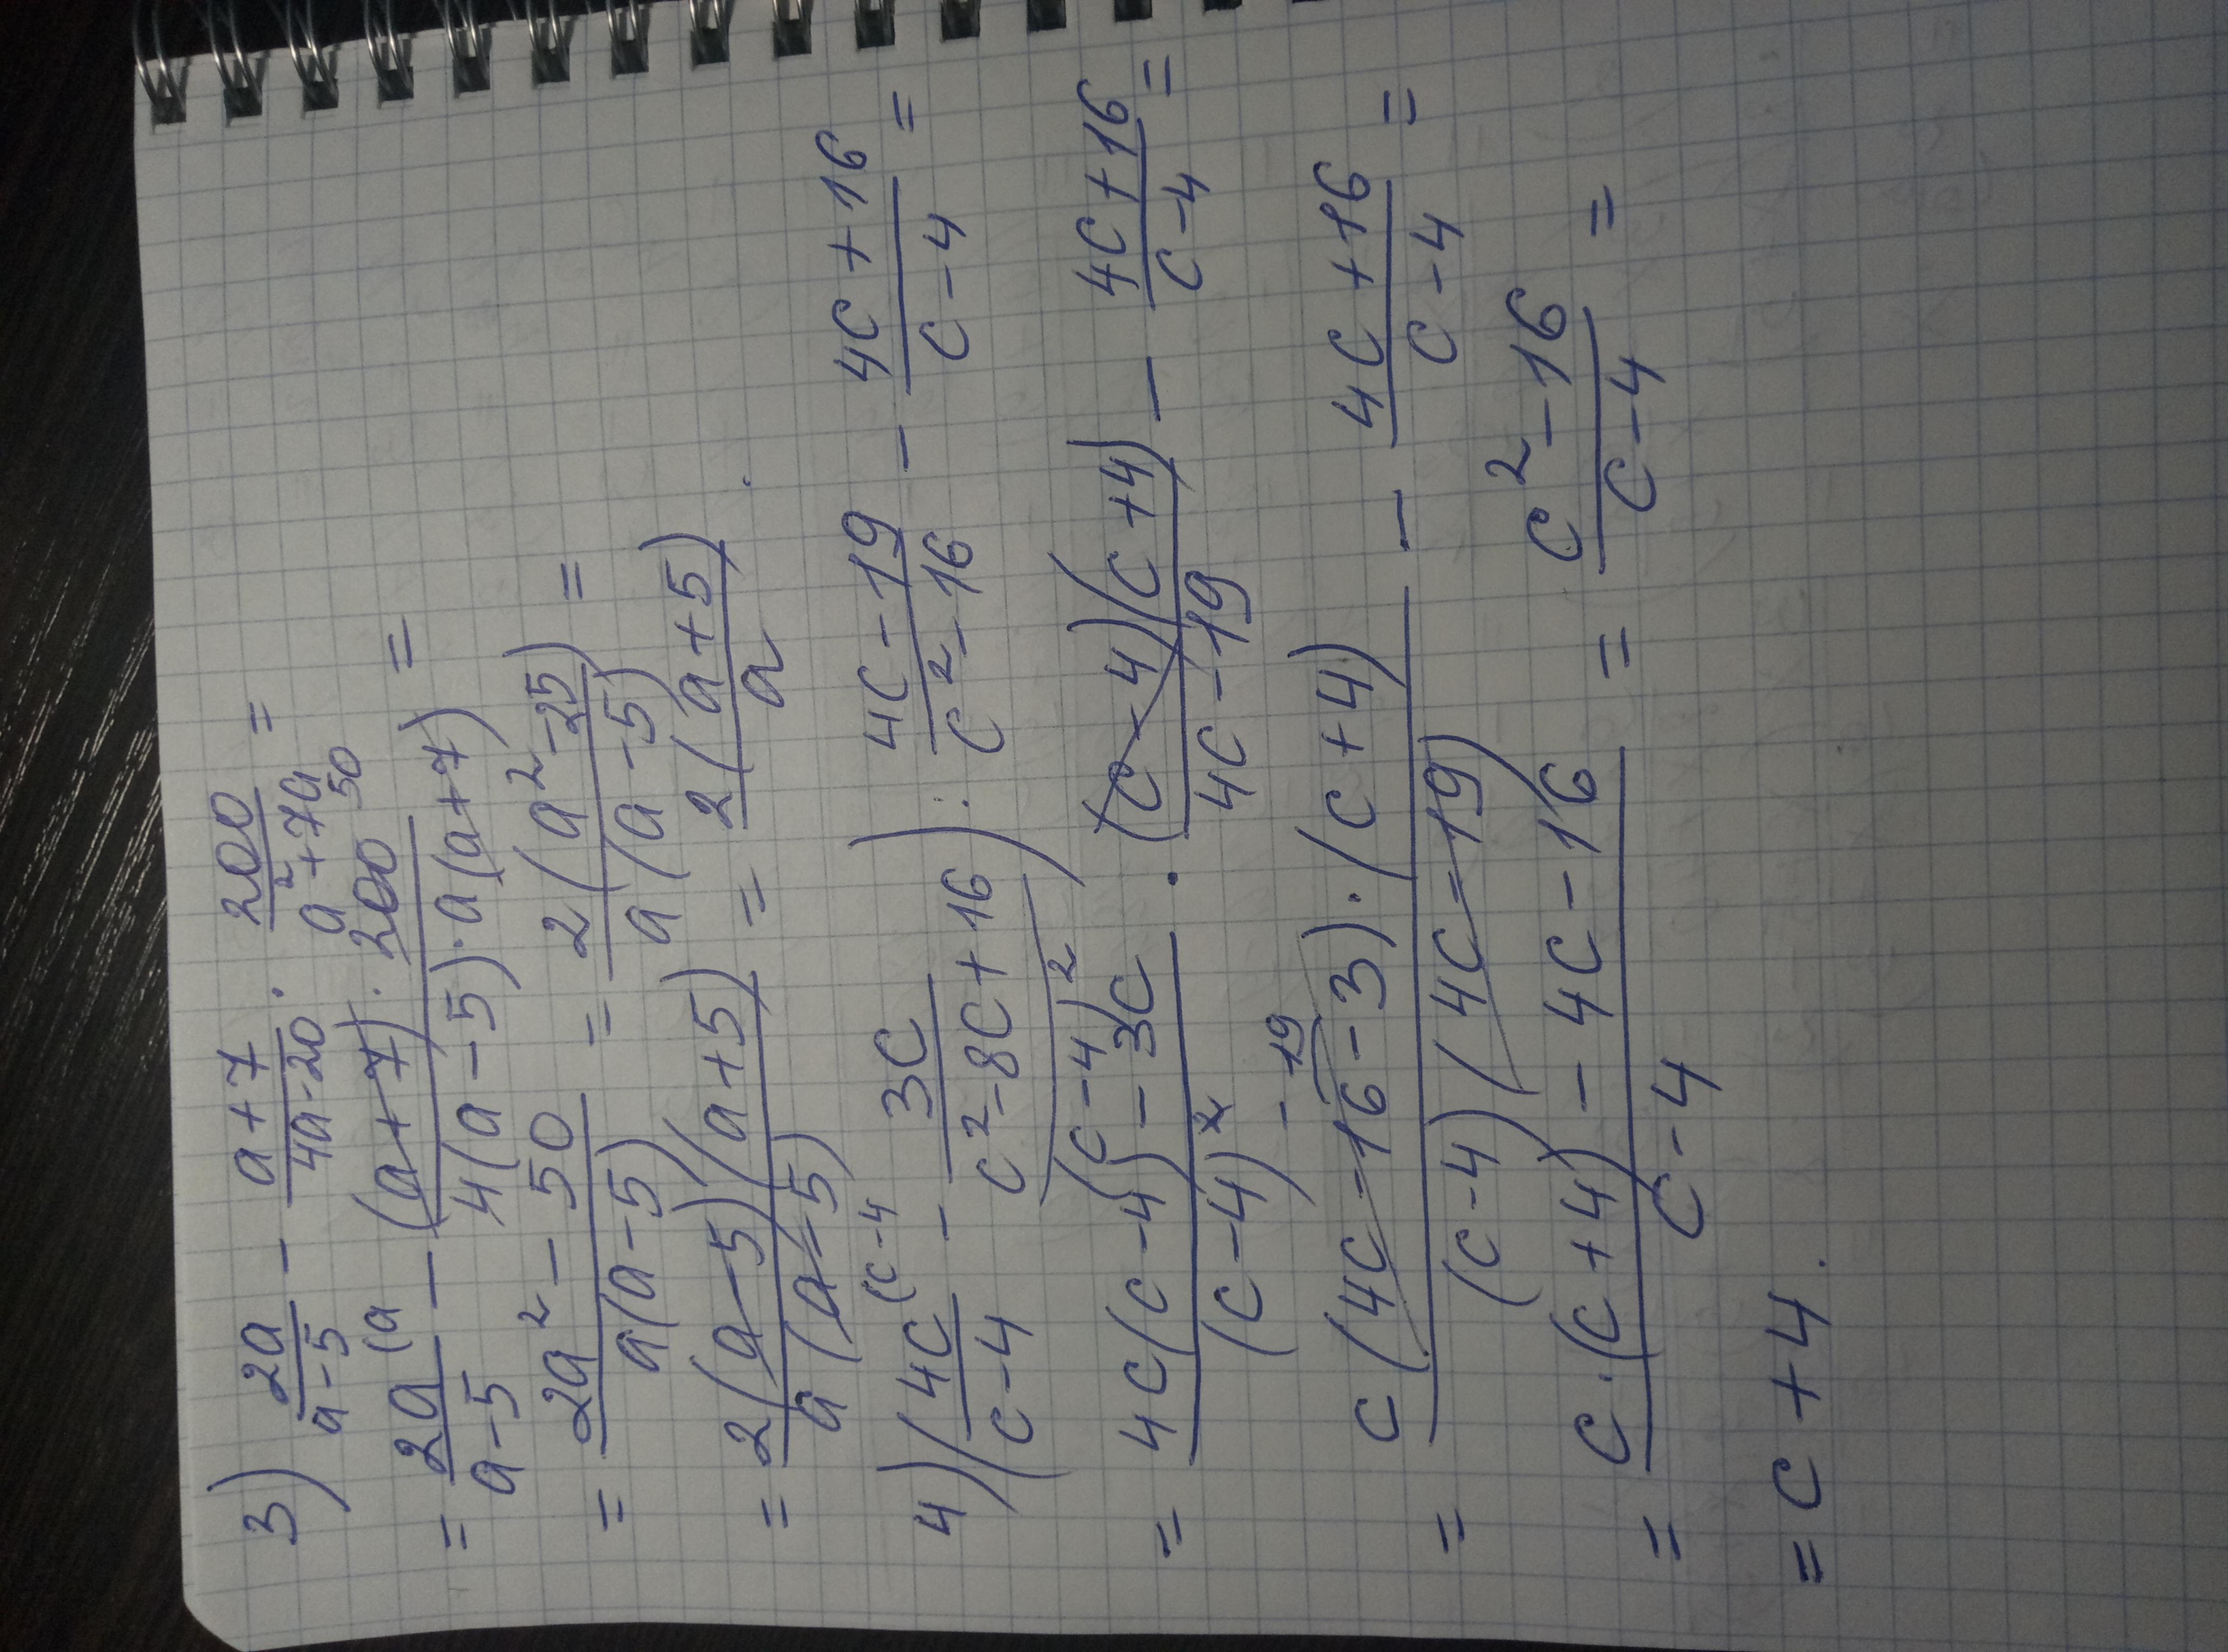 3) 2a/(a-5) - (a+7)/(4a-20) · 200/(a²+7a) =
= 2a/(a-5) (a - (a+7) · 200 50/(4(a-5) · a(a+7)) =
= (2a² - 50)/(a(a-5)) = 2(a²-25)/(a(a-5)) =
= 2(a-5)(a+5)/(a(a-5)) = 2(a+5)/a .
4) (4c/(c-4) (c-4 - 3c/(c²-8c+16)) : (4c-19)/(c²-16) - (4c+16)/(c-4) =
(c-4)²
= (4c(c-4) - 3c)/(c-4)² · (c-4)(c+4)/(4c-19) - (4c+16)/(c-4) =
-19
= c(4c-16-3) · (c+4)/((c-4)(4c-19)) - (4c+16)/(c-4) =
= (c · (c+4) - 4c - 16)/(c-4) = (c²-16)/(c-4) =
= c+4.